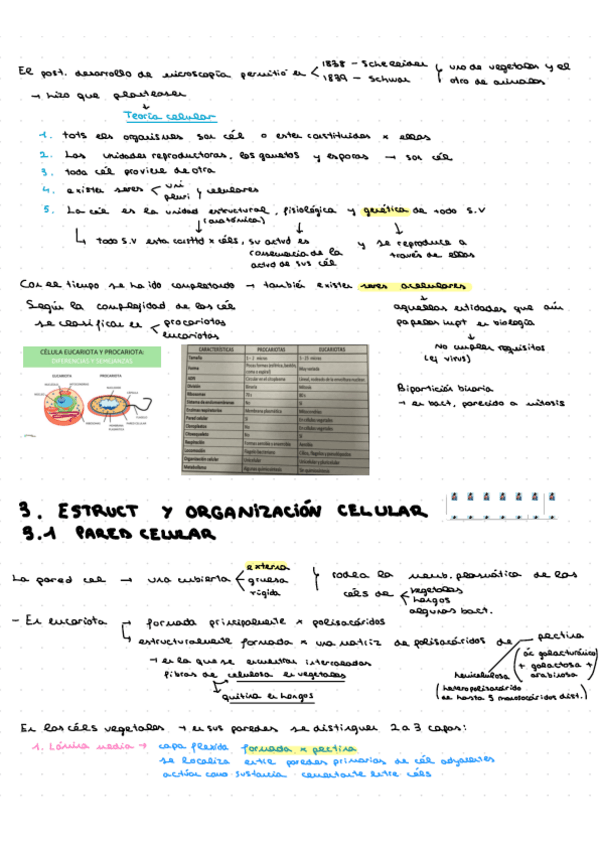 El post. desarrollo de microscopía permitió en < 1838 - Schleiden
1839 - Schwan } uno de vegetales y el
otro de animales
→ hizo que plantease
Teoría celular
1. tots els organismes son cél o esten constituidos x ellas
2. Las unidades reproductoras, los gametos y esporas → son cél
3. toda cél proviene de otra
4. existen seres < uni
pluri } celulares
5. La cél es la unidad estructural, fisiológica y genética de todo S.V
(anatómica)
↳ todo S.V esta constitd x céls, su activd es
consecuencia de la
activd de sus cél
y se reproduce a
través de ellas
Con el tiempo se ha ido completando → también existen seres acelulares
aquellas entidades que aún
papeles impt en biología
No cumplen requisitos
(ej virus)
Según la complejidad de las cél
se clasifican en < procariotas
eucariotas
CÉLULA EUCARIOTA Y PROCARIOTA:
DIFERENCIAS Y SEMEJANZAS
EUCARIOTA PROCARIOTA
CARACTERÍSTICAS PROCARIOTAS EUCARIOTAS
Tamaño
Forma Muy variada
ADN Circular en el citoplasma
División Binaria Mitosis
Ribosomas 70 s 80 s
Sistema de endomembranas No Sí
Enzimas respiratorios Membrana plasmática Mitocondrias
Pared celular Sí En células vegetales
Cloroplastos No En células vegetales
Citoesqueleto No Sí
Respiración Aerobia
Locomoción Flagelo bacteriano Cilios, flagelos y pseudópodos
Organización celular Unicelular Unicelular y pluricelular
Metabolismo
Bipartición binaria
→ en bact, parecido a mitosis
3. ESTRUCT Y ORGANIZACIÓN CELULAR
3.1 PARED CELULAR
La pared cel → una cubierta < externa
gruesa
rígida
} rodea la memb. plasmática de las
céls de < vegetales
hongos
algunas bact.
- En eucariota → formada principalmente x polisacáridos
→ estructuralmente formada x una matriz de polisacáridos de → pectina
(ác galacturónico
+ galactosa +
arabinosa)
hemicelulosa
(heteropolisacárido
de hasta 5 monosacáridos dist.)
→ en la que se encuentran intercaladas
fibras de celulosa en vegetales
quitina en hongos
En las céls vegetales → en sus paredes se distinguen 2 a 3 capas:
1. Lámina media → capa flexible formada x pectina
se localiza entre paredes primarias de cél adyacentes
actúan como sustancia cementante entre céls